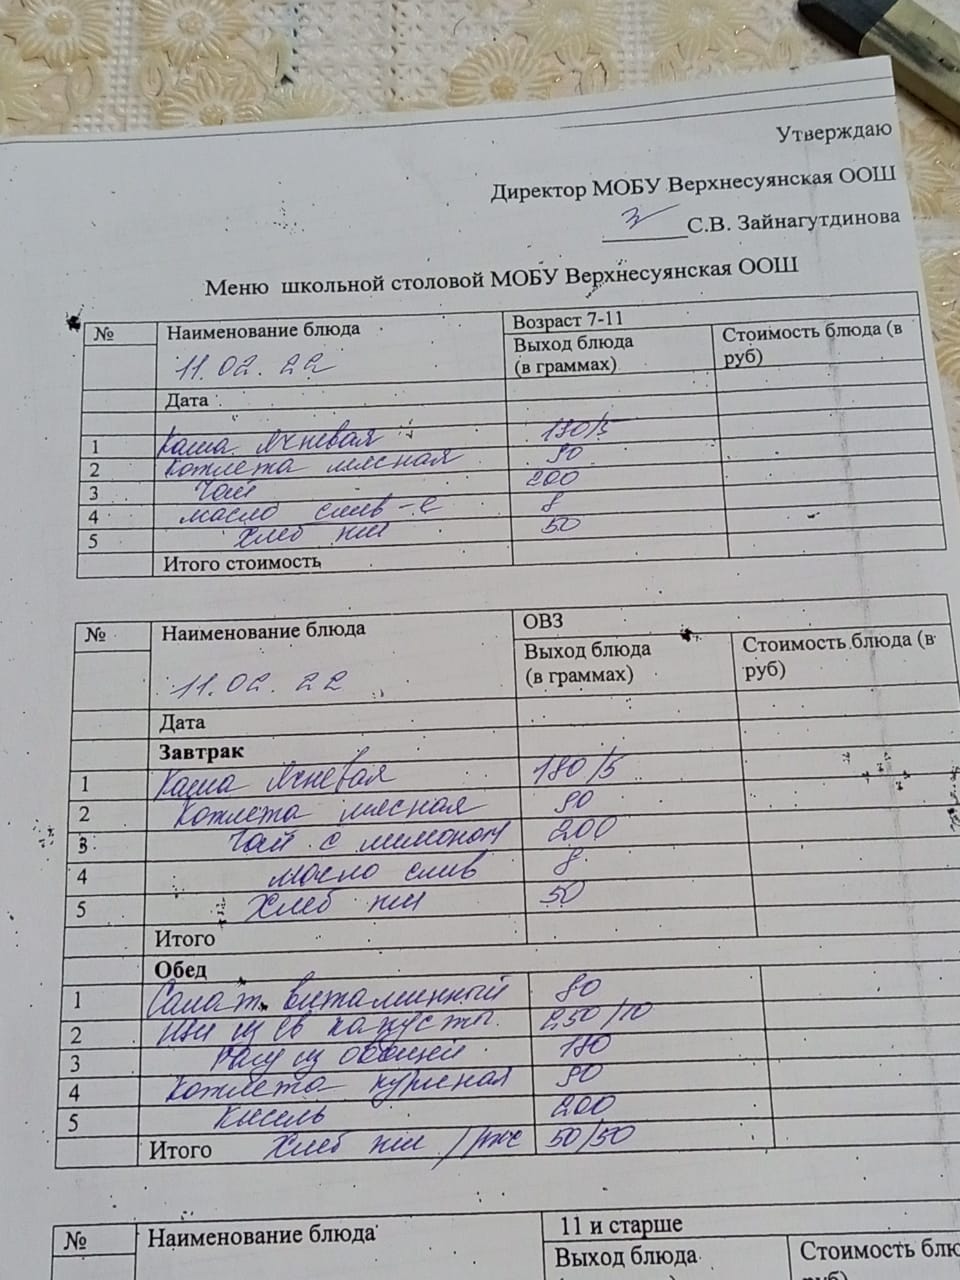 Утверждаю
Директор МОБУ Верхнесуянская ООШ
С.В. Зайнагутдинова
Меню школьной столовой МОБУ Верхнесуянская ООШ
№ Наименование блюда Возраст 7-11
11.02.22 Выход блюда (в граммах) Стоимость блюда (в руб)
Дата
1 Каша Ячневая 180/5
2 Котлета мясная 90
3 Чай 200
4 масло слив-е 8
5 Хлеб пш 50
Итого стоимость
№ Наименование блюда ОВЗ
11.02.22 Выход блюда (в граммах) Стоимость блюда (в руб)
Дата
Завтрак
1 Каша Ячневая 180/5
2 Котлета мясная 90
3 Чай с лимоном 200
4 масло слив 8
5 Хлеб пш 50
Итого
Обед
1 Салат витаминный 80
2 Щи из св капусты 250/10
3 Рагу из овощей 180
4 Котлета куриная 90
5 Кисель 200
Итого Хлеб пш /рж 50/50
№ Наименование блюда 11 и старше
Выход блюда Стоимость